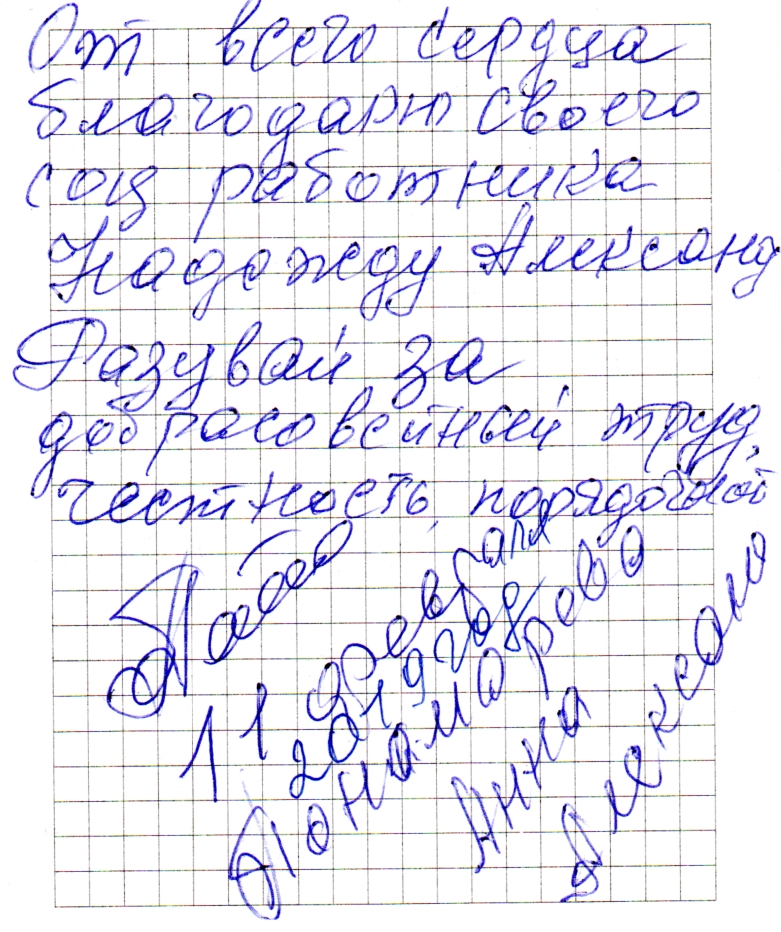 От всего сердца
благодарю своего
соц работника
Надежду Александ
Разувай за
добрасовестный труд,
честность, порядочност
11 февраля
2019 год
Понаморева
Анна
Алексан